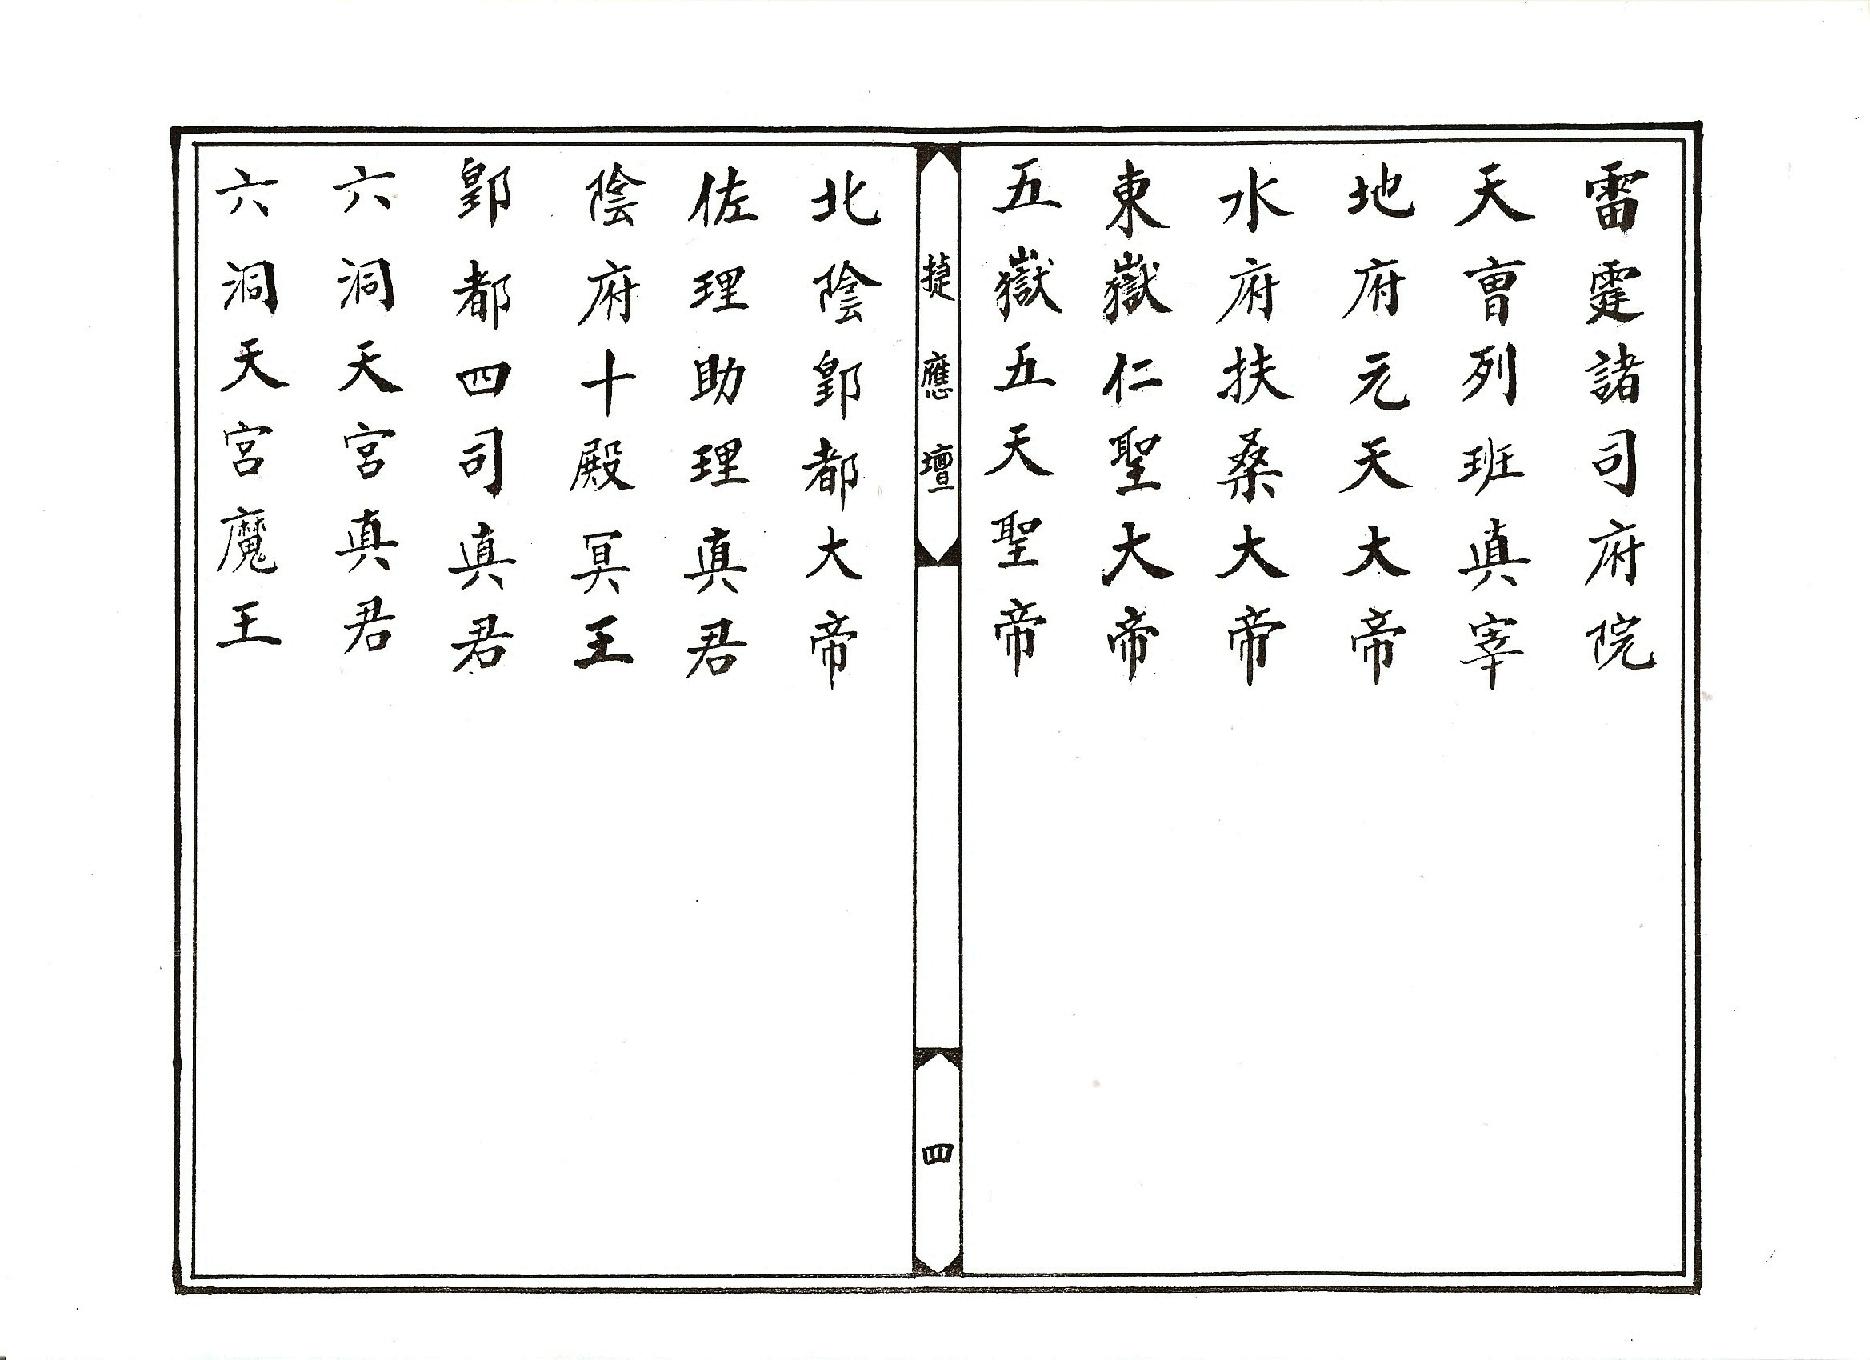 雷霆諸司府院
天曹列班真宰
地府元天大帝
水府扶桑大帝
東嶽仁聖大帝
五嶽五天聖帝
捷應壇
四
北陰酆都大帝
佐理助理真君
陰府十殿冥王
酆都四司真君
六洞天宮真君
六洞天宮魔王